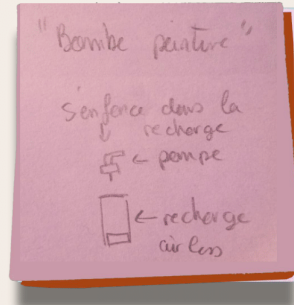 "Bombe peinture"
s'enfonce dans la
recharge
← pompe
← recharge
airless